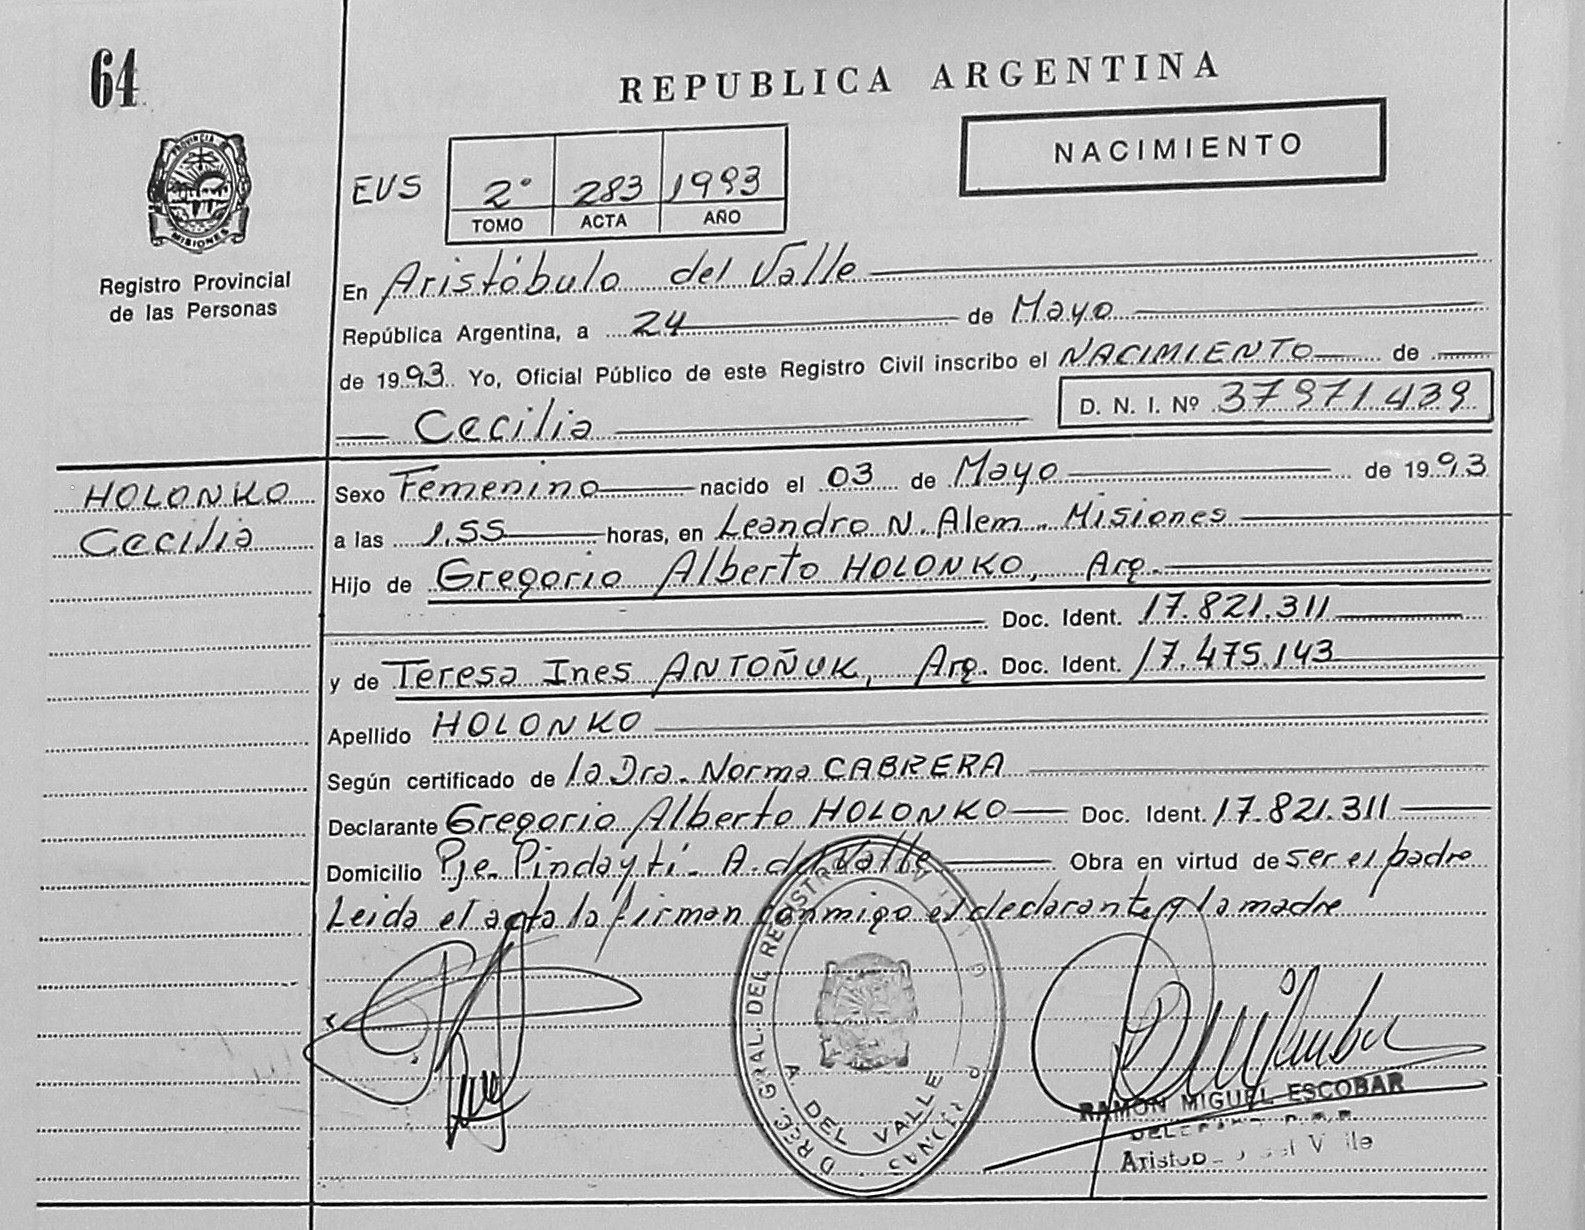 64
REPUBLICA ARGENTINA
NACIMIENTO
PROVINCIA
MISIONES
Registro Provincial
de las Personas
EUS 2º 283 1993
TOMO ACTA AÑO
En Aristóbulo del Valle
República Argentina, a 24 de Mayo
de 1993 Yo, Oficial Público de este Registro Civil inscribo el NACIMIENTO de
Cecilia D. N. I. Nº 37971439
HOLONKO
Cecilia
Sexo Femenino nacido el 03 de Mayo de 1993
a las 1.55 horas, en Leandro N. Alem - Misiones
Hijo de Gregorio Alberto HOLONKO, Arg.
Doc. Ident. 17.821.311
y de Teresa Ines ANTOÑUK, Arg. Doc. Ident. 17.475.143
Apellido HOLONKO
Según certificado de la Dra. Norma CABRERA
Declarante Gregorio Alberto HOLONKO Doc. Ident. 17.821.311
Domicilio Pje. Pindaytí - A. del Valle Obra en virtud de ser el padre
Leida el acta la firman conmigo el declarante y la madre
DREC. GRAL. DEL REGISTRO
A. DEL VALLE
RAMON MIGUEL ESCOBAR